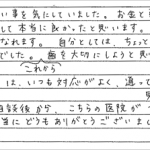 い事を気にしていました。お金と
して本当に良かったと思います。
なれます。自分としては、ちょっと
でした。歯を大切にしようと思い
これから
は、いつも対応がよく、通って
相談後から、こちらの医院が
当にどうもありがとうございまし